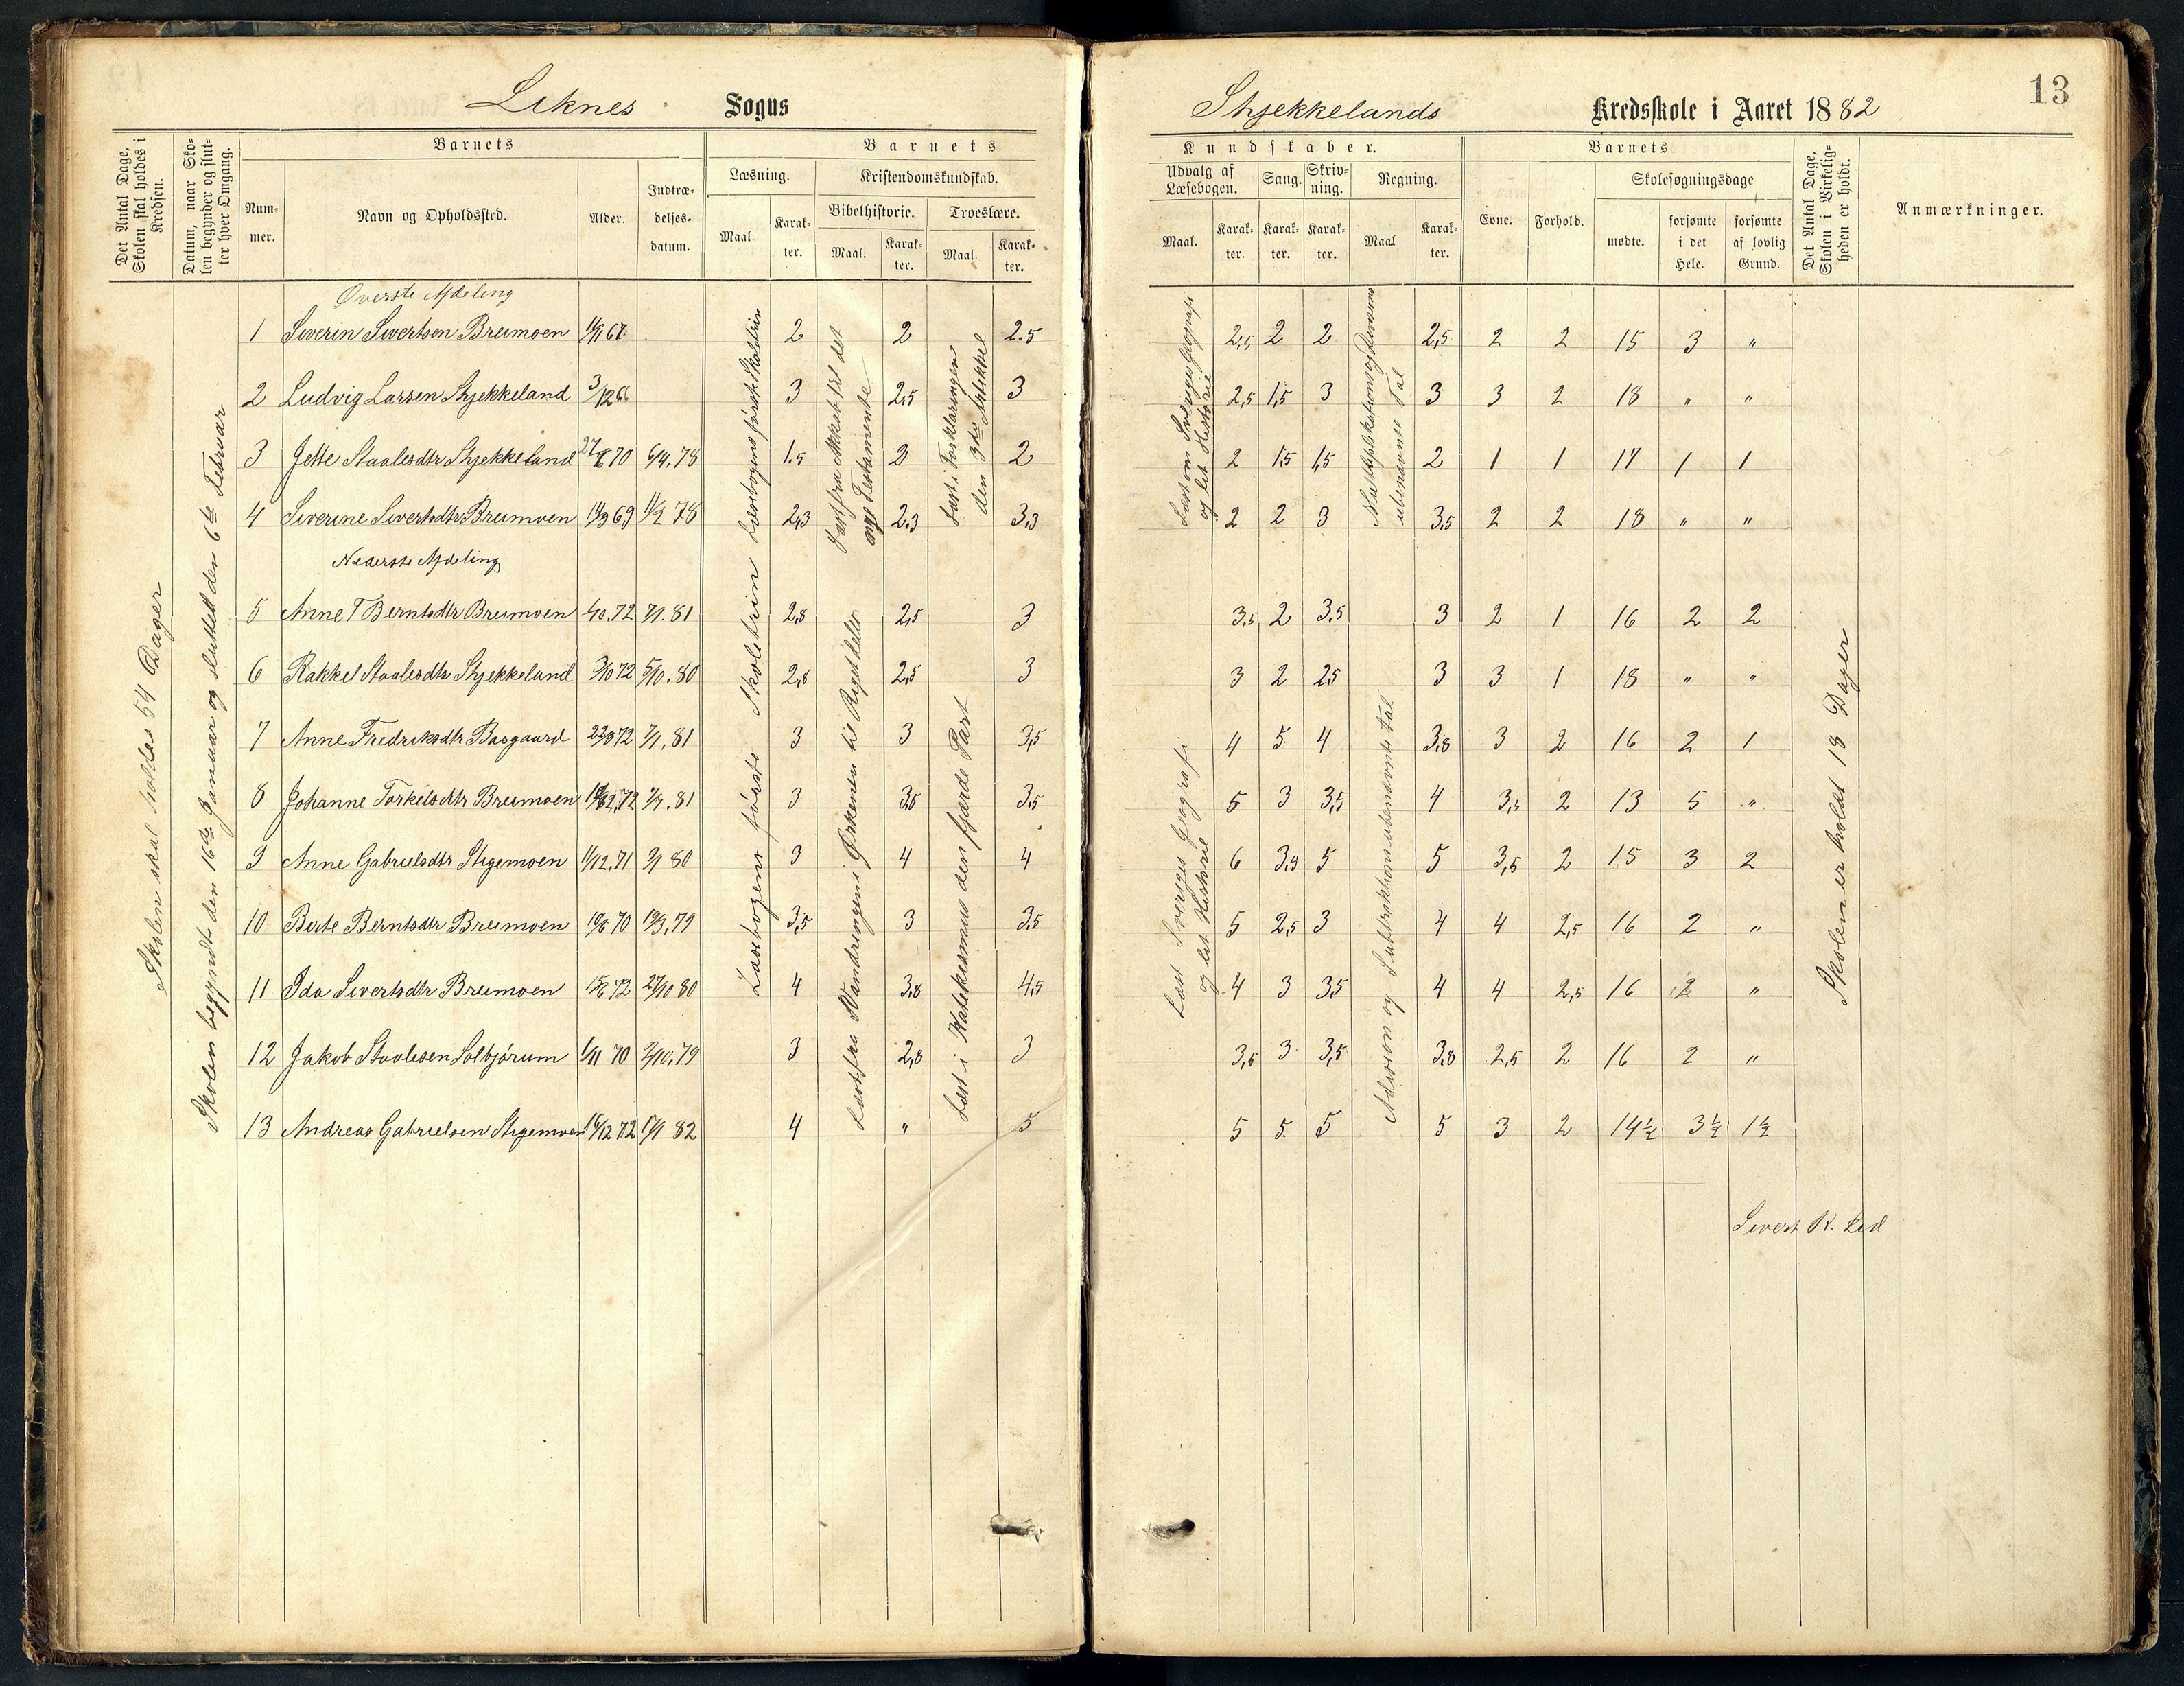 Liknes Sogns
Det Antal Dage, Skolen skal holdes i Kredsen.
Datum, naar Skolen begynder og slutter hver Omgang.
Barnets
Barnets
Nummer.
Navn og Opholdssted.
Alder.
Indtrædelsesdatum.
Læsning.
Kristendomskundskab.
Bibelhistorie.
Troeslære.
Maal.
Karakter.
Maal.
Karakter.
Maal.
Karakter.
Skolen skal holdes 54 Dager
Skolen begyndt den 16de Januar og sluttet den 6te Februar
Øverste Afdeling
1 Siverin Sivertsen Breimoen 2 2 2.5
2 Ludvig Larsen Stjekkeland 3 2,5 3
3 Jette Staalesdtr Stjekkeland 6/4.78 1.5 2 2
4 Siverine Sivertsdtr Breimoen 2,3 2.3 3,3
Nederste Afdeling
5 Anne T Berntsdtr Breimoen 4/10.72 7/1.81 2,8 2,5 3
6 Rakkel Staalesdtr Stjekkeland 3/10 72 5/10.80 2,8 2,5 3
7 Anne Fredriksdtr Bosgaard 22/9 72 7/1.81 3 3 3,5
8 Johanne Torkelsdtr Breimoen 7/1.81 3 3,5 3.5
9 Anne Gabrielsdtr Stigemoen 3 4 4
10 Berte Berntsdtr Breimoen 3,5 3 3.5
11 Ida Sivertsdtr Breimoen 27/10 80 4 3,8 4,5
12 Jakob Staalesen Solbjørum 3 2,8 3
13 Andreas Gabrielsen Stigemoen 4 " 5
Læsebogens første Skoletrin
Læst fra Vandringen i Ørkenen til
Læst i Katekismus den fjærde Part
Læst i Forklaringen den 3die Artikkel
Stjekkelands Kredsskole i Aaret 1882
13
Kundskaber.
Barnets
Udvalg af Læsebogen.
Sang.
Skrivning.
Regning.
Evne.
Forhold.
Skolesøgningsdage
Det Antal Dage, Skolen i Virkeligheden er holdt.
Anmærkninger.
Maal.
Karakter.
Karakter.
Karakter.
Maal.
Karakter.
mødte.
forsømte i det Hele.
forsømte af lovlig Grund.
2,5 2 2 2,5 2 2 15 3 "
2,5 1,5 3 3 3 2 18 " "
2 1,5 1,5 2 1 1 17 1 1
2 2 3 3,5 2 2 18 " "
3,5 2 3,5 3 2 1 16 2 2
3 2 2,5 3 3 1 18 " "
4 5 4 3,8 3 2 16 2 1
5 3 3,5 4 3,5 2 13 5 "
6 3,5 5 5 3,5 2 15 3 2
5 2,5 3 4 4 2,5 16 2 "
4 3 3,5 4 4 2,5 16 2 "
3,5 3 3,5 3,8 2,5 2 16 2 "
5 5 5 5 3 2 14½ 3½ 1½
Læst om Sveriges Geografi og lit Historie
Læst Sveriges Geografi og lit Historie
Adision og Subtraktion ubenævnte tal
Skolen er holdt 18 Dager